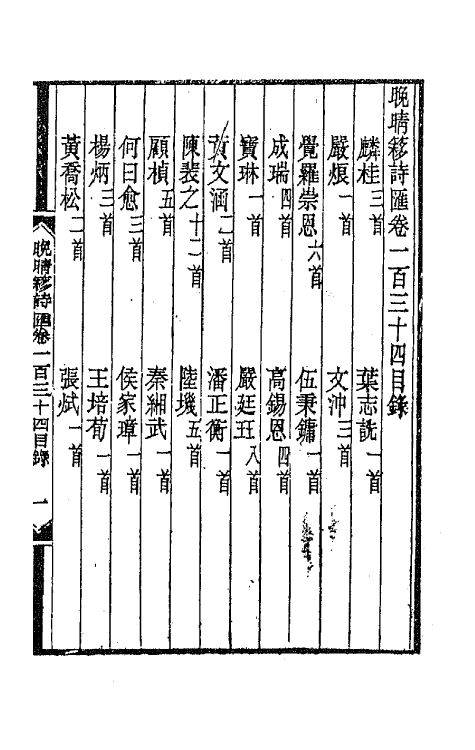 晚晴簃詩匯卷一百三十四目錄
麟桂三首 葉志詵一首
嚴烺一首 文沖三首
覺羅崇恩六首 伍秉鏞一首
成瑞四首 高錫恩四首
寶琳一首 嚴廷珏八首
黃文涵二首 潘正衡一首
陳裴之十二首 陸璣五首
顧槙五首 秦緗武一首
何曰愈三首 侯家璋一首
楊炳三首 王培荀一首
黃喬松二首 張斌一首
晚晴簃詩匯卷一百三十四目錄 一